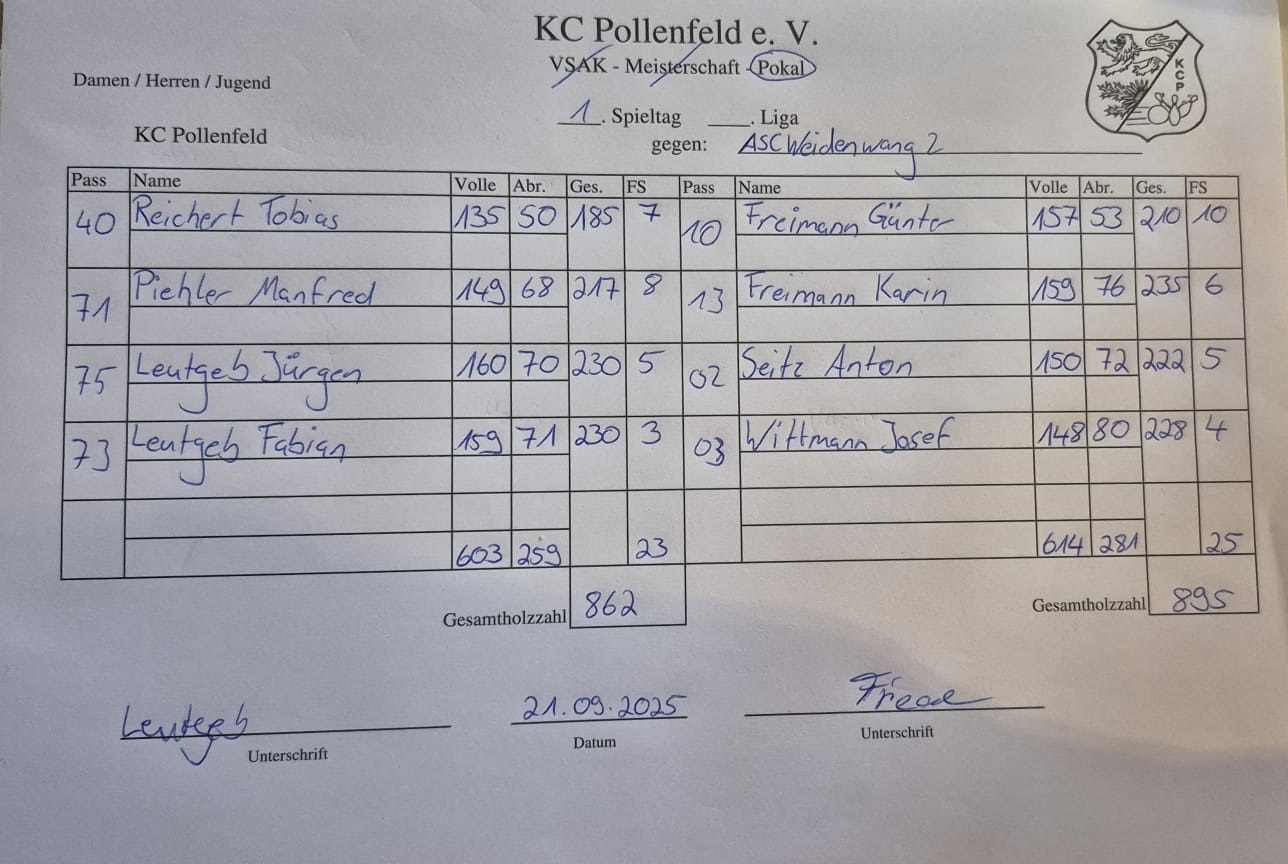 KC Pollenfeld e. V.
VSAK - Meisterschaft - Pokal
Damen / Herren / Jugend
1. Spieltag ____. Liga
KC Pollenfeld
gegen: ASC Weidenwang 2
KCP
Pass Name Volle Abr. Ges. FS Pass Name Volle Abr. Ges. FS
40 Reichert Tobias 135 50 185 7 10 Freimann Günter 157 53 210 10
71 Piehler Manfred 149 68 217 8 13 Freimann Karin 159 76 235 6
75 Leutgeb Jürgen 160 70 230 5 02 Seitz Anton 150 72 222 5
73 Leutgeb Fabian 159 71 230 3 03 Wittmann Josef 148 80 228 4
603 259 23 614 281 25
Gesamtholzzahl 862 Gesamtholzzahl 895
Leutgeb 21.09.2025
Unterschrift Datum Unterschrift